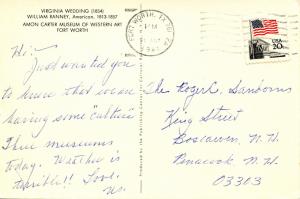 VIRGINIA WEDDING (1854)
WILLIAM RANNEY, American, 1813-1857
AMON CARTER MUSEUM OF WESTERN ART
FORT WORTH
FORT WORTH, TX
PM
USA
20c
Hi,
Just wanted you
to know that we are
having some "culture"
Three museums
today. Weather is
terrible!! Love.
Us.
The Roger C. Sanborns
King Street
Boscawen, N.H.
Penacook N.H.
03303